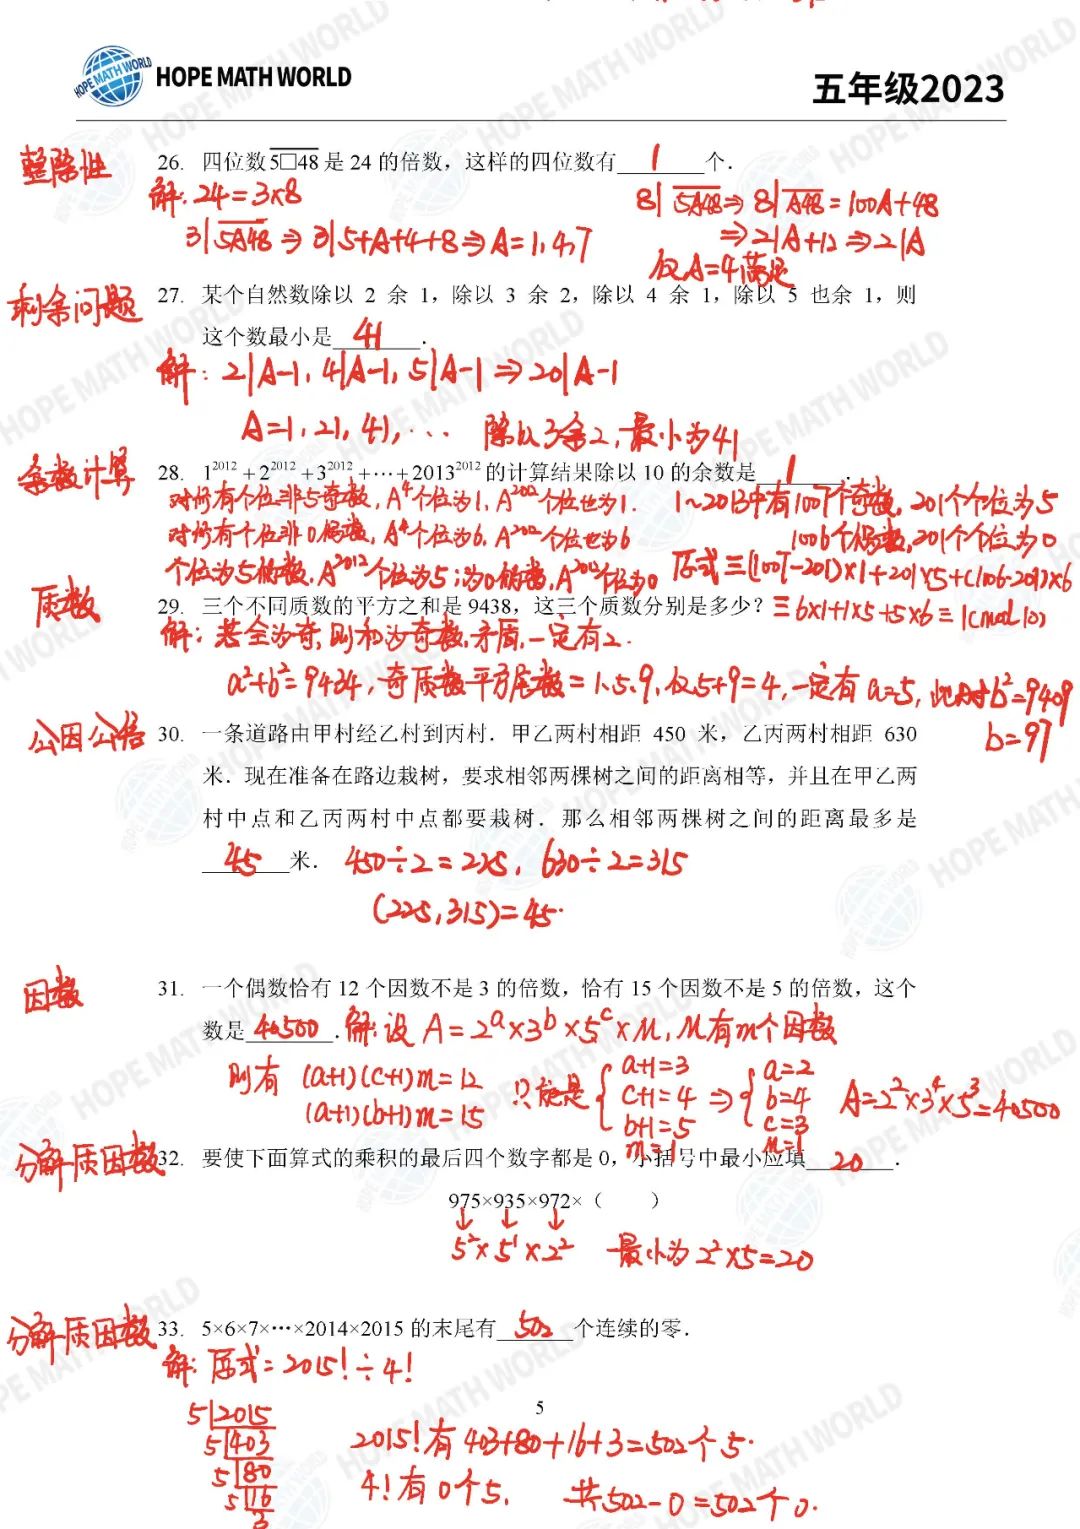 HOPE MATH WORLD
五年级2023
整除性
26. 四位数5□48是 24 的倍数，这样的四位数有 1 个．
解: 24=3×8
8|5A48⇒8|A48=100A+48
3|5A48⇒3|5+A+4+8⇒A=1,4,7
⇒2|A+12⇒2|A
仅A=4满足
剩余问题
27. 某个自然数除以 2 余 1，除以 3 余 2，除以 4 余 1，除以 5 也余 1，则
这个数最小是 41 ．
解: 2|A-1, 4|A-1, 5|A-1⇒20|A-1
A=1, 21, 41, ... 除以3余2, 最小为41
余数计算
28. 1^2012+2^2012+3^2012+⋯+2013^2012 的计算结果除以 10 的余数是 1 ．
对所有个位非5奇数, A^4个位为1, A^2012个位也为1.
1~2013中有1007个奇数, 201个个位为5
对所有个位非0偶数, A^4个位为6, A^2012个位也为6
1006个偶数, 201个个位为0
个位为5的数, A^2012个位为5; 为0的数, A^2012个位为0
原式≡(1007-201)×1+201×5+(1006-201)×6
≡6×1+1×5+5×6≡1(mod 10)
质数
29. 三个不同质数的平方之和是 9438，这三个质数分别是多少？
解: 若全为奇, 则和为奇数, 矛盾, 一定有2.
a²+b²=9434, 奇质数平方尾数=1、5、9, 仅5+9=4, 一定有 a=5, 此时b²=9409
b=97
公因公倍
30. 一条道路由甲村经乙村到丙村．甲乙两村相距 450 米，乙丙两村相距 630
米．现在准备在路边栽树，要求相邻两棵树之间的距离相等，并且在甲乙两
村中点和乙丙两村中点都要栽树．那么相邻两棵树之间的距离最多是
45 米．
450÷2=225, 630÷2=315
(225,315)=45.
因数
31. 一个偶数恰有 12 个因数不是 3 的倍数，恰有 15 个因数不是 5 的倍数，这个
数是 40500 ．
解: 设 A=2^a×3^b×5^c×M, M有m个因数
则有 (a+1)(c+1)m=12
(a+1)(b+1)m=15
只能是 { a+1=3
c+1=4
b+1=5
m=1
⇒ { a=2
b=4
c=3
M=1
A=2²×3⁴×5³=40500
分解质因数
32. 要使下面算式的乘积的最后四个数字都是 0，小括号中最小应填 20 ．
975×935×972×（ ）
↓ ↓ ↓
5²×5¹×2² 最小为 2²×5=20
分解质因数
33. 5×6×7×⋯×2014×2015 的末尾有 502 个连续的零．
解: 原式=2015!÷4!
5
5|2015
5|403
5|80
5|16
3
2015!有 403+80+16+3=502个5.
4!有0个5. 共502-0=502个0.